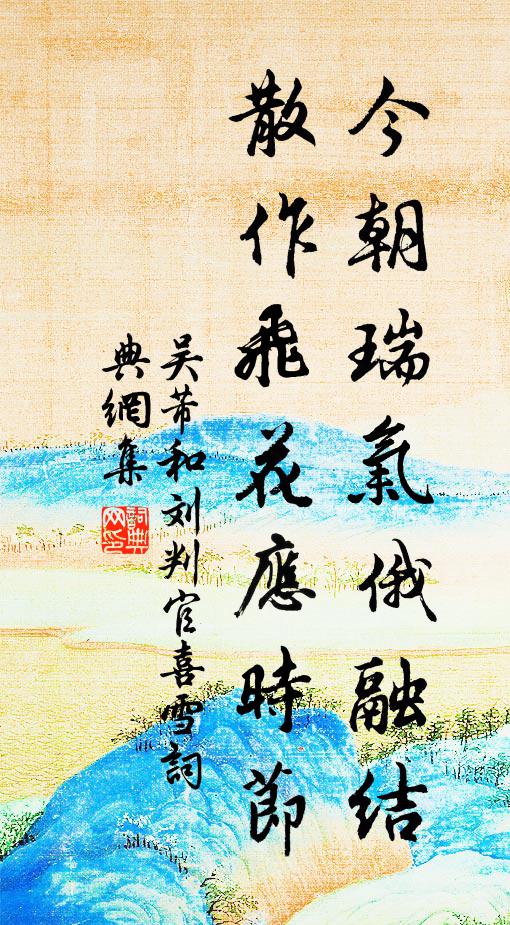 今朝瑞氣俄融結
散作飛花應時節
吴芾和刘判官喜雪詞
典網集
詞典
网印